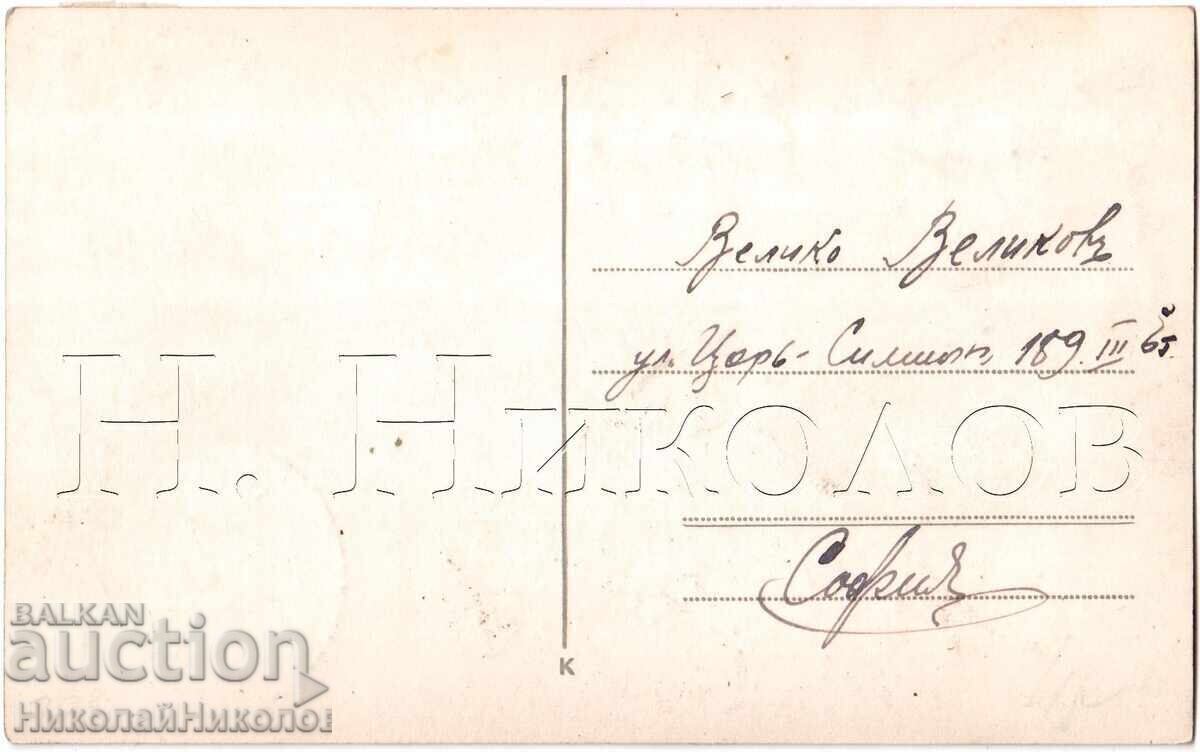 Велико Великовъ
ул. Царь-Симеон 189 III
Н. Николов
София
BALKAN
auction
НиколайНиколов
К